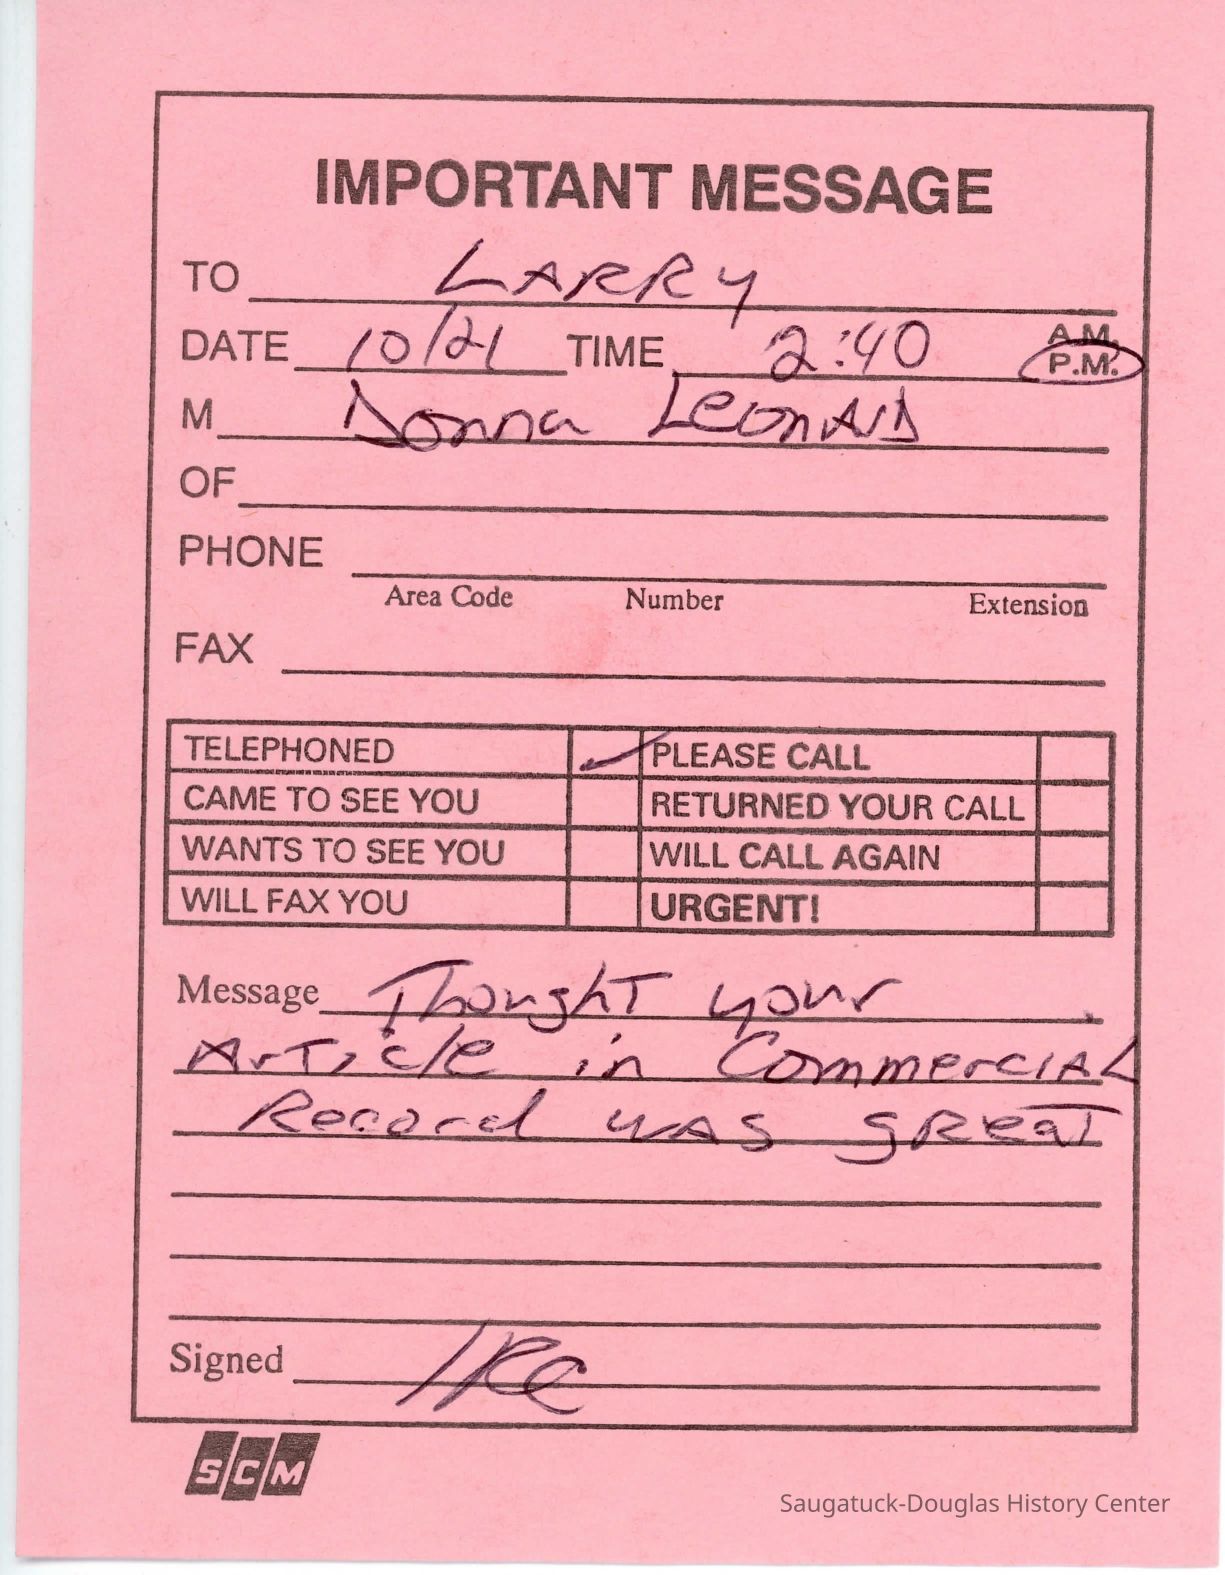 IMPORTANT MESSAGE
TO LARRY
DATE 10/21 TIME 2:40 A.M. P.M.
M Donna Leonard
OF
PHONE
Area Code Number Extension
FAX
TELEPHONED ✓ PLEASE CALL
CAME TO SEE YOU RETURNED YOUR CALL
WANTS TO SEE YOU WILL CALL AGAIN
WILL FAX YOU URGENT!
Message Thought your
Article in Commercial
Record was great
Signed
SCM
Saugatuck-Douglas History Center